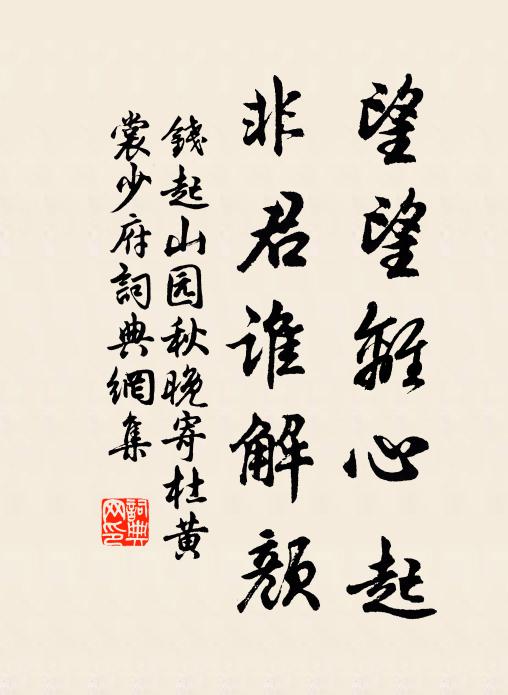 望望離心起
非君誰解顏
錢起山园秋晚寄杜黄
裳少府詞典網集
詞典
网印